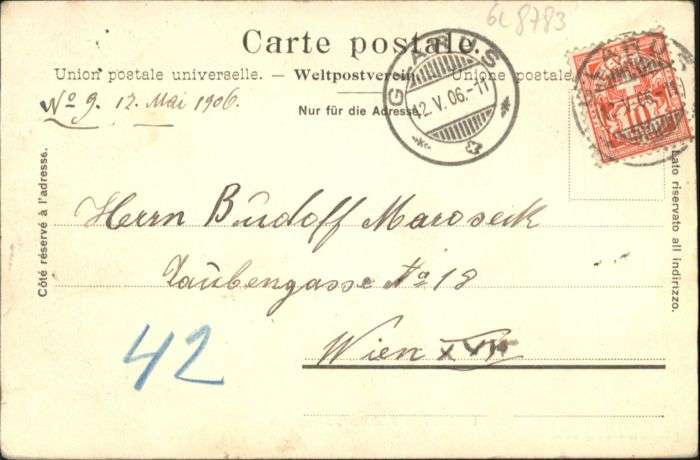 6L8783
Carte postale.
Union postale universelle. — Weltpostverein. — Unione postale
Nº 9. 12. Mai 1906.
Nur für die Adresse.
GLARUS
12. V. 06.-11
10
Côté réservé à l'adresse.
Lato riservato all indirizzo.
Herrn Rudolf Maroseck
Taubengasse Nº 18
Wien
42